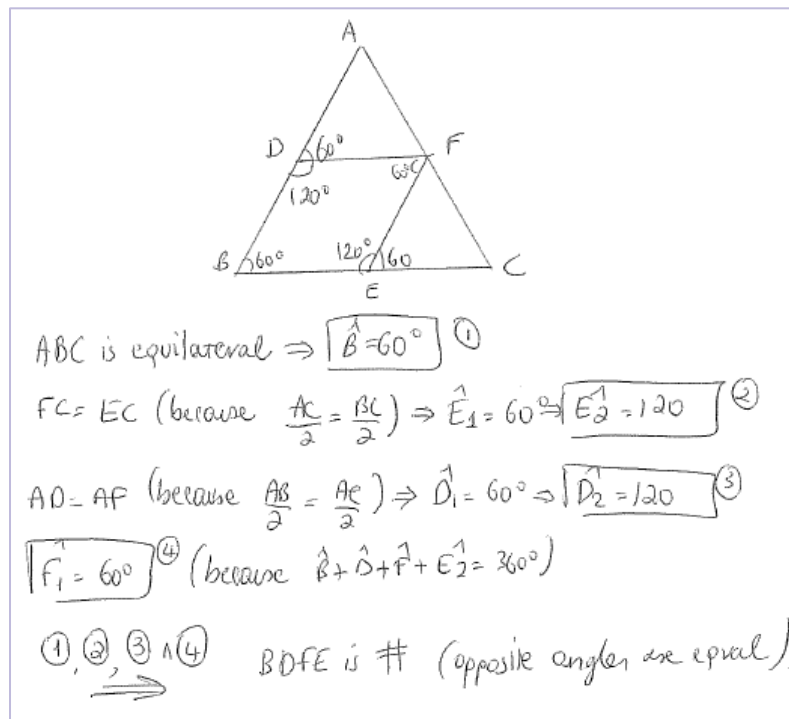 A
D 60° F
60°
120°
B 60° 120° 60 C
E
ABC is equilateral ⇒ B̂=60° ①
FC = EC (because AC/2 = BC/2) ⇒ Ê₁ = 60° ⇒ Ê₂ = 120 ②
AD = AF (because AB/2 = AC/2) ⇒ D̂₁ = 60° ⇒ D̂₂ = 120 ③
F̂₁ = 60° ④ (because B̂+D̂+F̂+Ê₂ = 360°)
①, ②, ③ ∧ ④ ⇒ BDFE is # (opposite angles are equal)